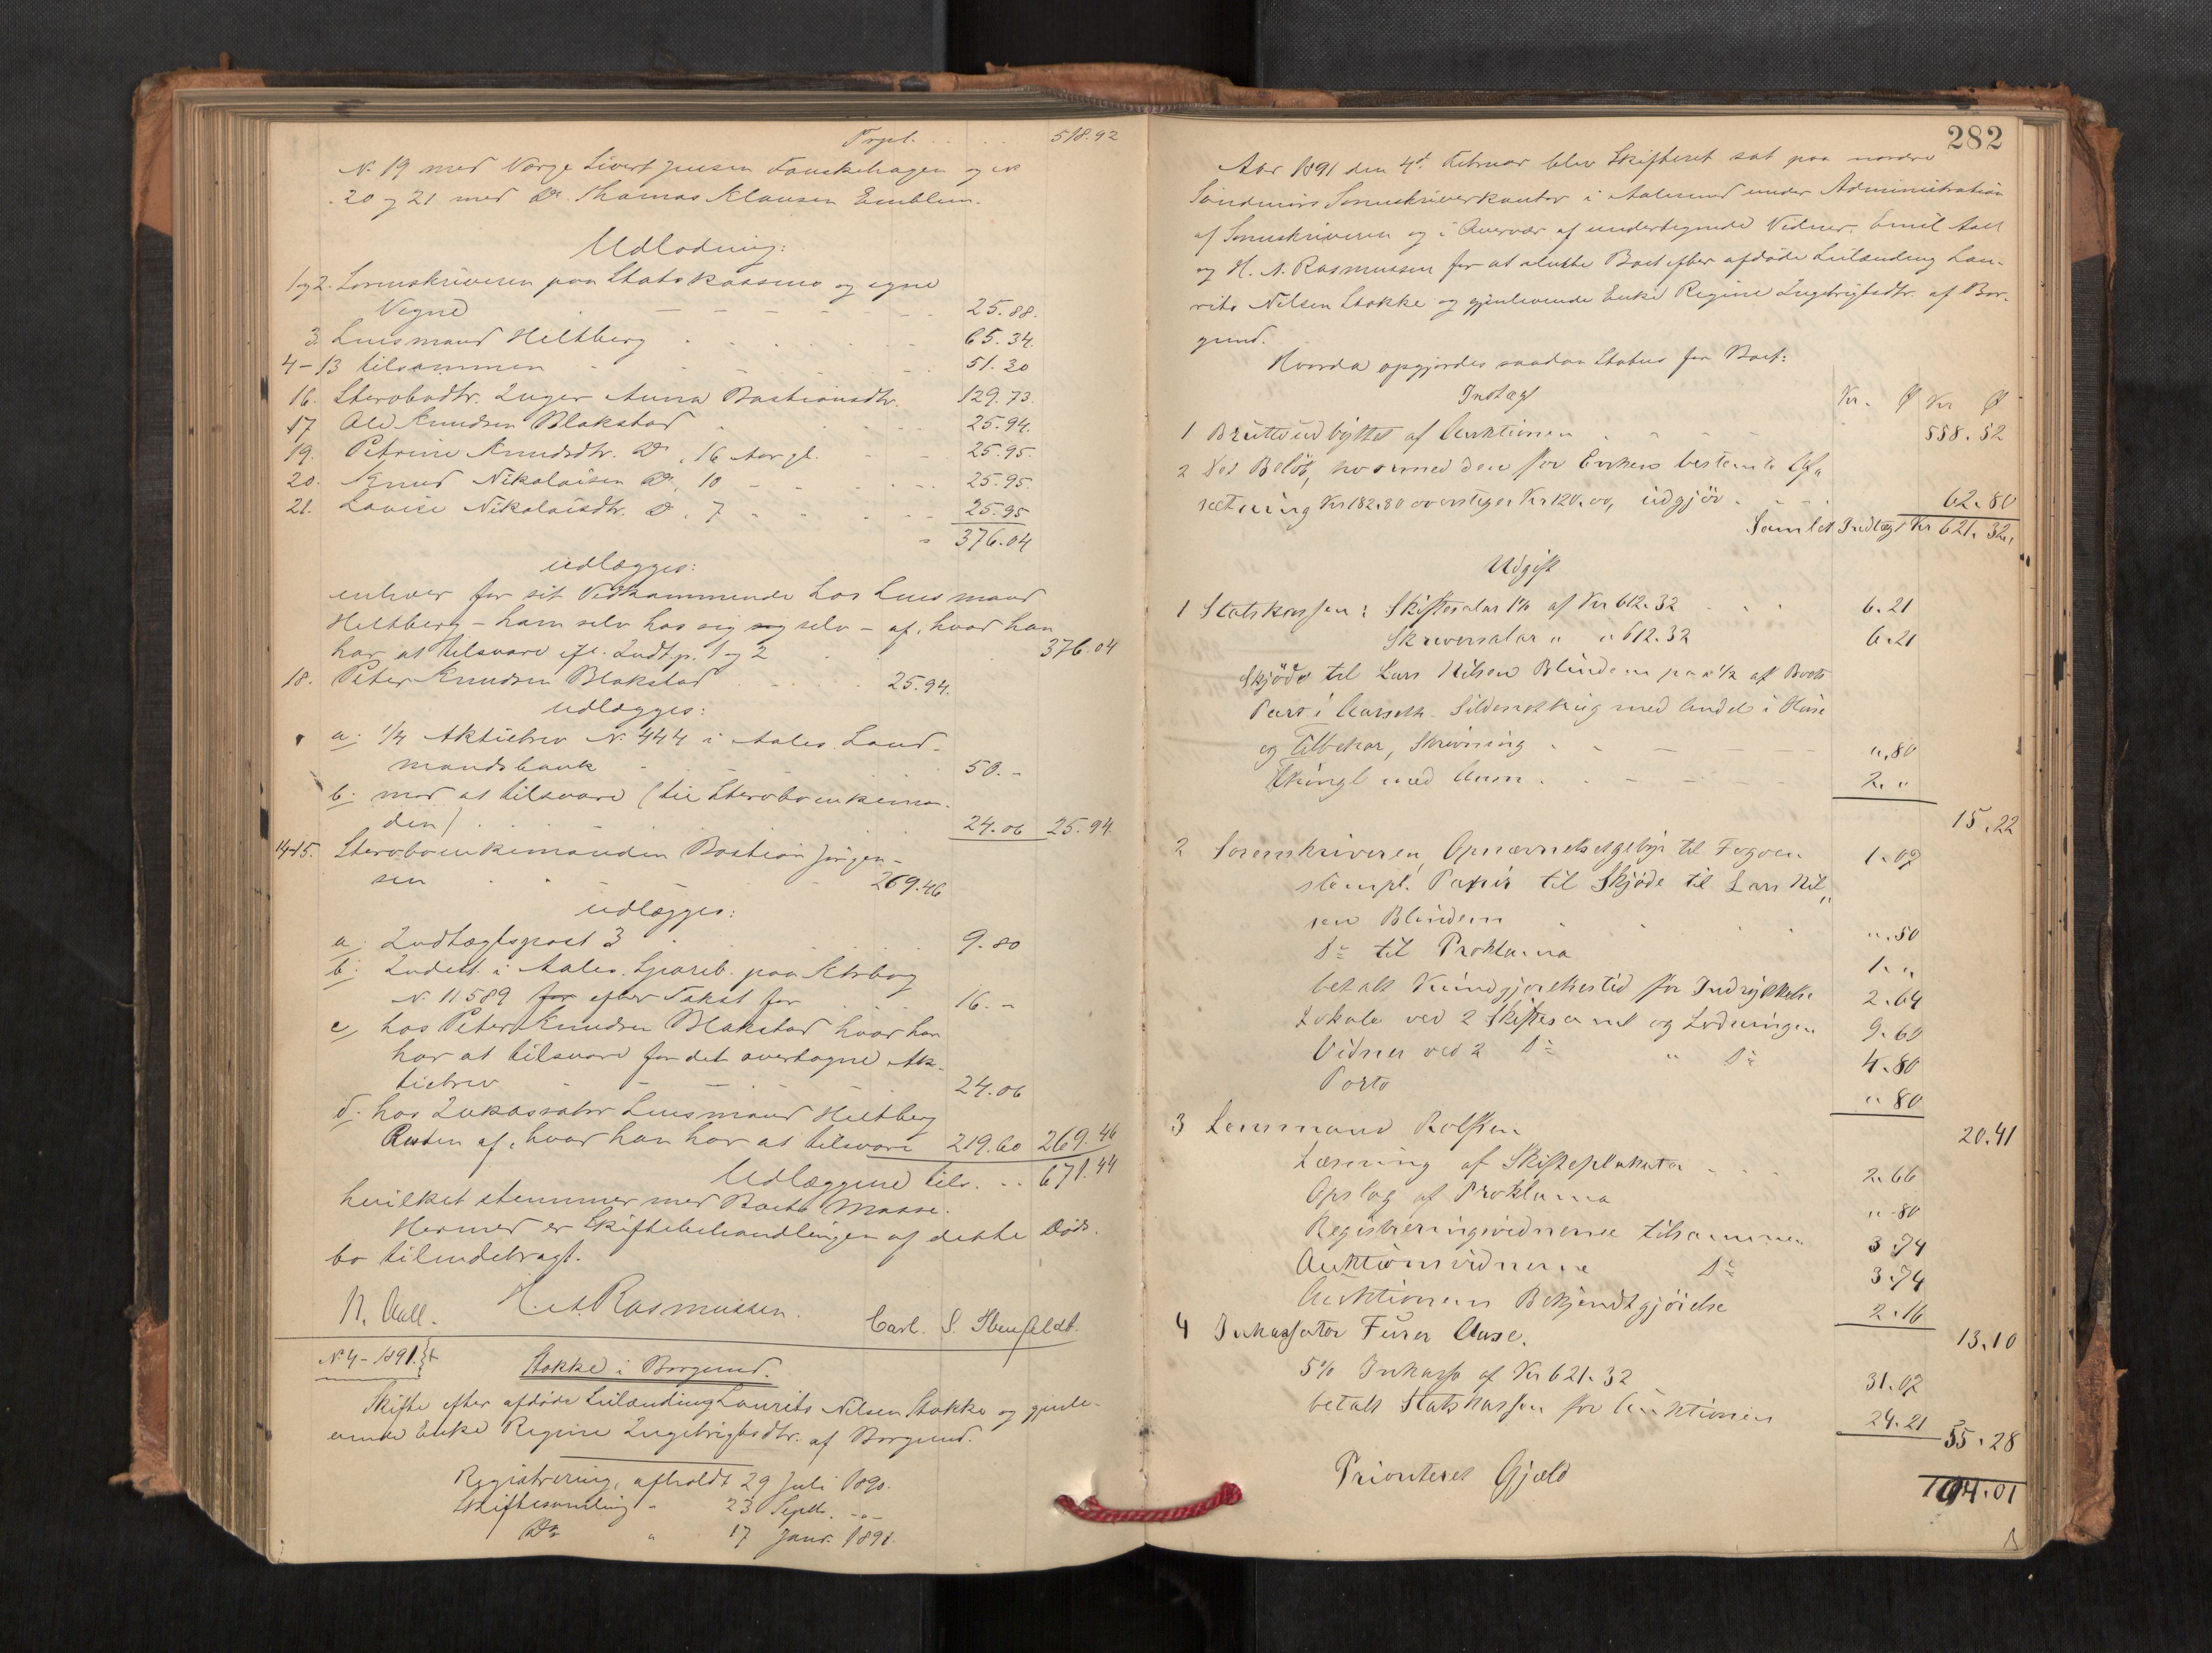 Trpt. . . . . 518.92
N. 19 med Værge Sivert Jensen Fauskehagen og N
20 og 21 med Do. Thomas Klausen Emblem.
Udlodning:
1 og 2. Sorenskriveren paa Statskassens og egne
Vegne 25.88.
3. Lensmand Heltberg 65.34.
4-13 tilsammen 51.20
16. Stervbodtr. Inger Anna Bastiansdtr. 129.73.
17 Ole Knudsen Blakstad 25.94.
19. Petrine Knudsdtr. Do, 16 Aar gl. 25.95.
20. Knud Nikolaisen Do, 10 - 25.95.
21. Lovise Nikolaisdtr. Do, 7 - 25.95
376.04
udlægges:
enhver for sit Vedkommende hos Lensmand
Heltberg - ham selv hos sig sig selv - af, hvad han
har at tilsvare efl. Indt.p. 1 og 2 376.04
18. Peter Knudsen Blakstad 25.94.
udlægges:
a. 1/4 Aktiebrev N. 444 i Aales. Land-
mandsbank 50.-
b. mod at tilsvare (til Stervboenkeman-
den) 24.06 25.94.
14-15. Stervboenkemanden Bastian Jörgen-
sen 269.46
udlægges:
a. Indtægtspost 3 9.80
b. Indest. i Aales. Spareb. paa Ktrbog
N. 11589 for efter Takst for 16.-
c, hos Peter Knudsen Blakstad hvad han
har at tilsvare for det overtagne Ak-
tiebrev 24.06
d. hos Inkassator Lensmand Heltberg
Resten af, hvad han har at tilsvare 219.60 269.46
Udlæggene tils. 671.44
hvilket stemmer med Boets Masse.
Hermed er Skiftebehandlingen af dette Døds-
bo tilendebragt.
N. Aall. H. A. Rasmussen. Carl. S.
N. 4 - 1891.
Stokke i Borgund.
Skifte efter afdøde Leilænding Laurits Nilsen Stokke og gjenle-
vende Enke Regine Ingebrigtsdtr. af Borgund.
Registrering, afholdt 29 Juli 1890.
Skiftesamling " 23 Septb. -"-
Do " 17 Janr. 1891.
282
Aar 1891 den 4d. Februar blev Skifteret sat paa nordre
Söndmörs Sorenskriverkontor i Aalesund under Administration
af Sorenskriveren og i Overvær af undertegnede Vidner, Emil Aall
og H. A. Rasmussen for at slutte Boet efter afdöde Leilænding Lau-
rits Nilsen Stokke og gjenlevende Enke Regine Ingebrigtsdtr. af Bor-
gund.
Hvorda opgjordes saadan Status for Boet:
Indtægt Kr. Ø Kr Ø
1 Bruttoudbyttet af Auktionen 558.52
2 Det Beløb, hvormed den for Enkens bestemte Ud-
sætning Kr 182.80 overstiger Kr 120.00, udgjör 62.80
Samlet Indtægt Kr 621.32.
Udgift
1 Statskassen: Skiftesalar 1% af Kr 612.32 6.21
Skriversalar " " 612.32 6.21
Skjöde til Lars Nilsen Blindem paa 1/2 af Boets
Part i Aarseth-Sildenotbrug med Andel i Huse
og Tilbehør, Skrivning ".80
Thingl. med Anm. 2."
15.22
2 Sorenskriveren, Opnævnelsesgebyr til Fogden 1.07
stempl. Papir til Skjöde til Lars Nil-
sen Blindem ".50
Do til Proklama 1."
betalt Kundgjørelsestid. for Indrykkelse 2.64
Lokale ved 2 Skiftesaml og Lodningen 9.60
Vidner ved 2 Do " Do 4.80
Porto ".80
20.41
3 Lensmand Rolfsen
Læsning af Skifteplakater 2.66
Opslag af Proklama ".80
Registreringsvidnerne tilsammen 3.74
Auktionsvidnerne Do 3.74
Auktionens Bekjendtgjörelse 2.16
13.10
4 Inkassator Furer Aase.
5% Inkasso af Kr 621.32 31.07
betalt Statskassen for Auktionen 24.21
55.28
Prioriteret Gjæld 104.01